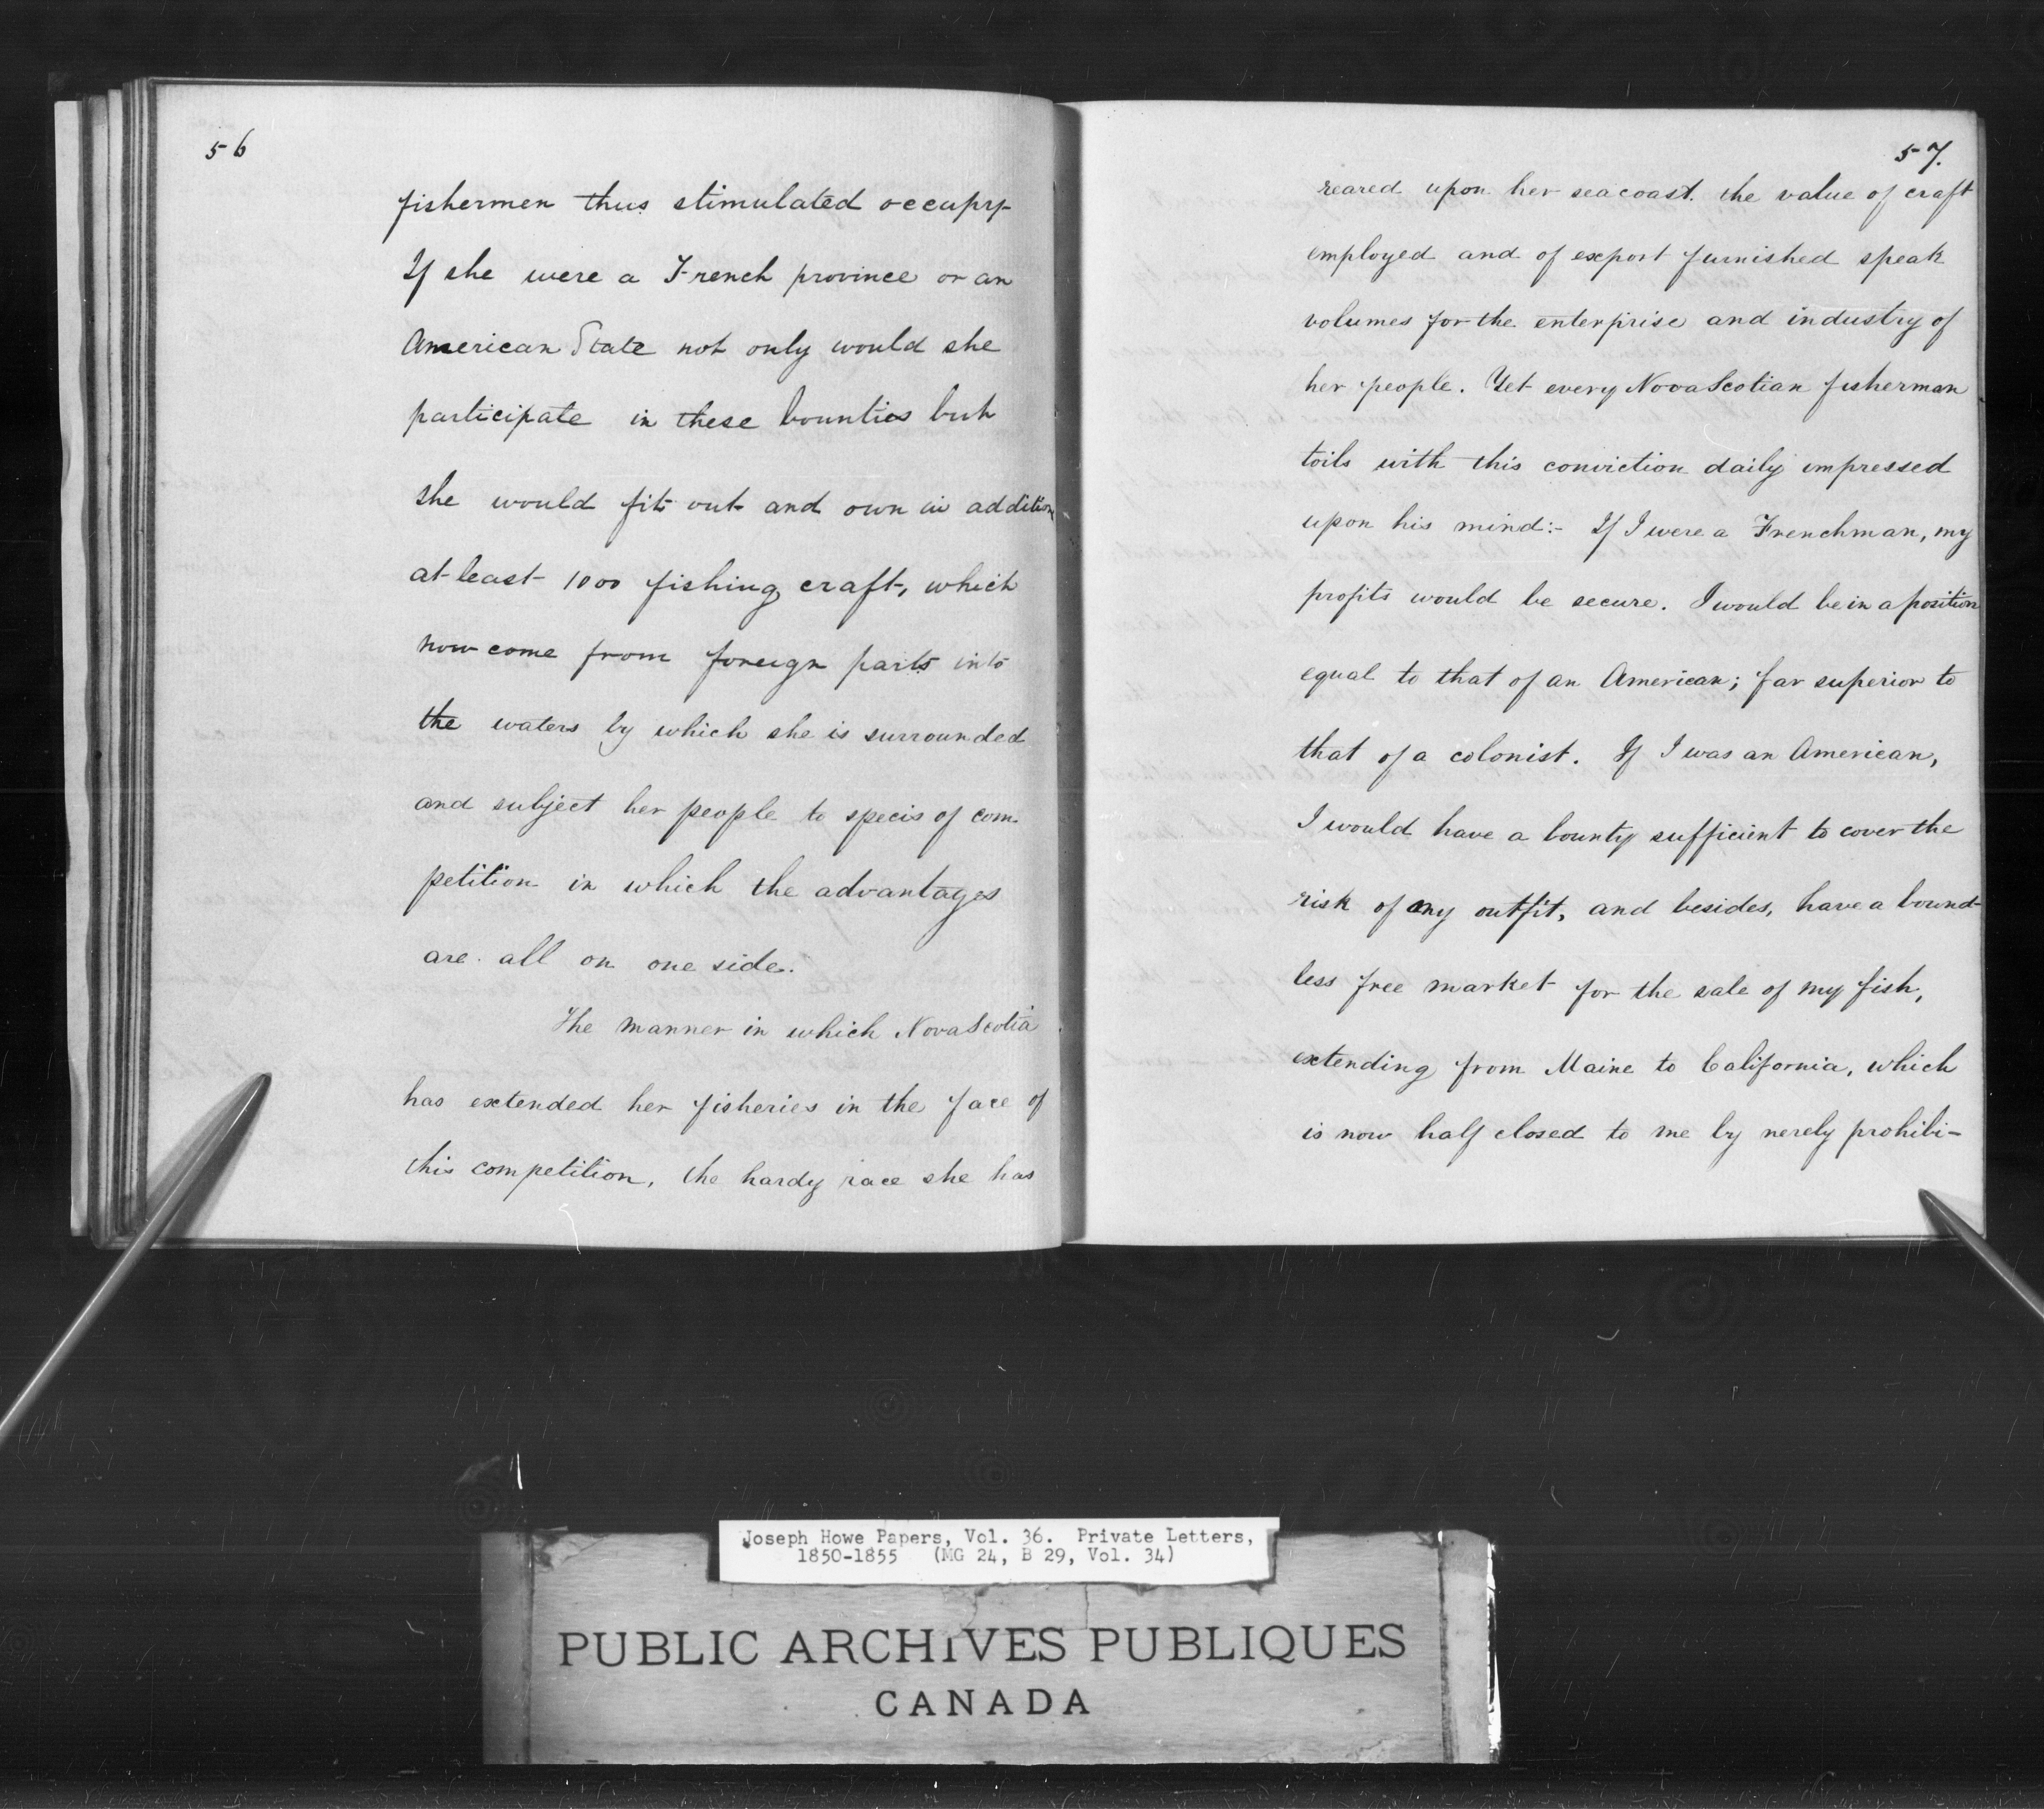 56
fishermen thus stimulated occupy-
If she were a French province or an
American State not only would she
participate in these bounties but
she would fit out and own in addition
at least 1000 fishing craft, which
now come from foreign parts into
the waters by which she is surrounded
and subject her people to specis of com-
petition in which the advantages
are all on one side.
The manner in which Nova Scotia
has extended her fisheries in the face of
this competition, the hardy race she has
57.
reared upon her seacoast. the value of craft
employed and of export furnished speak
volumes for the enterprise and industry of
her people. Yet every Nova Scotian fisherman
toils with this conviction daily impressed
upon his mind:- If I were a Frenchman, my
profits would be secure. I would be in a position
equal to that of an American; far superior to
that of a colonist. If I was an American,
I would have a bounty sufficient to cover the
risk of my outfit, and besides, have a bound-
less free market for the sale of my fish,
extending from Maine to California, which
is now half closed to me by nerely prohibi-
Joseph Howe Papers, Vol. 36. Private Letters,
1850-1855 (MG 24, B 29, Vol. 34)
PUBLIC ARCHIVES PUBLIQUES
CANADA